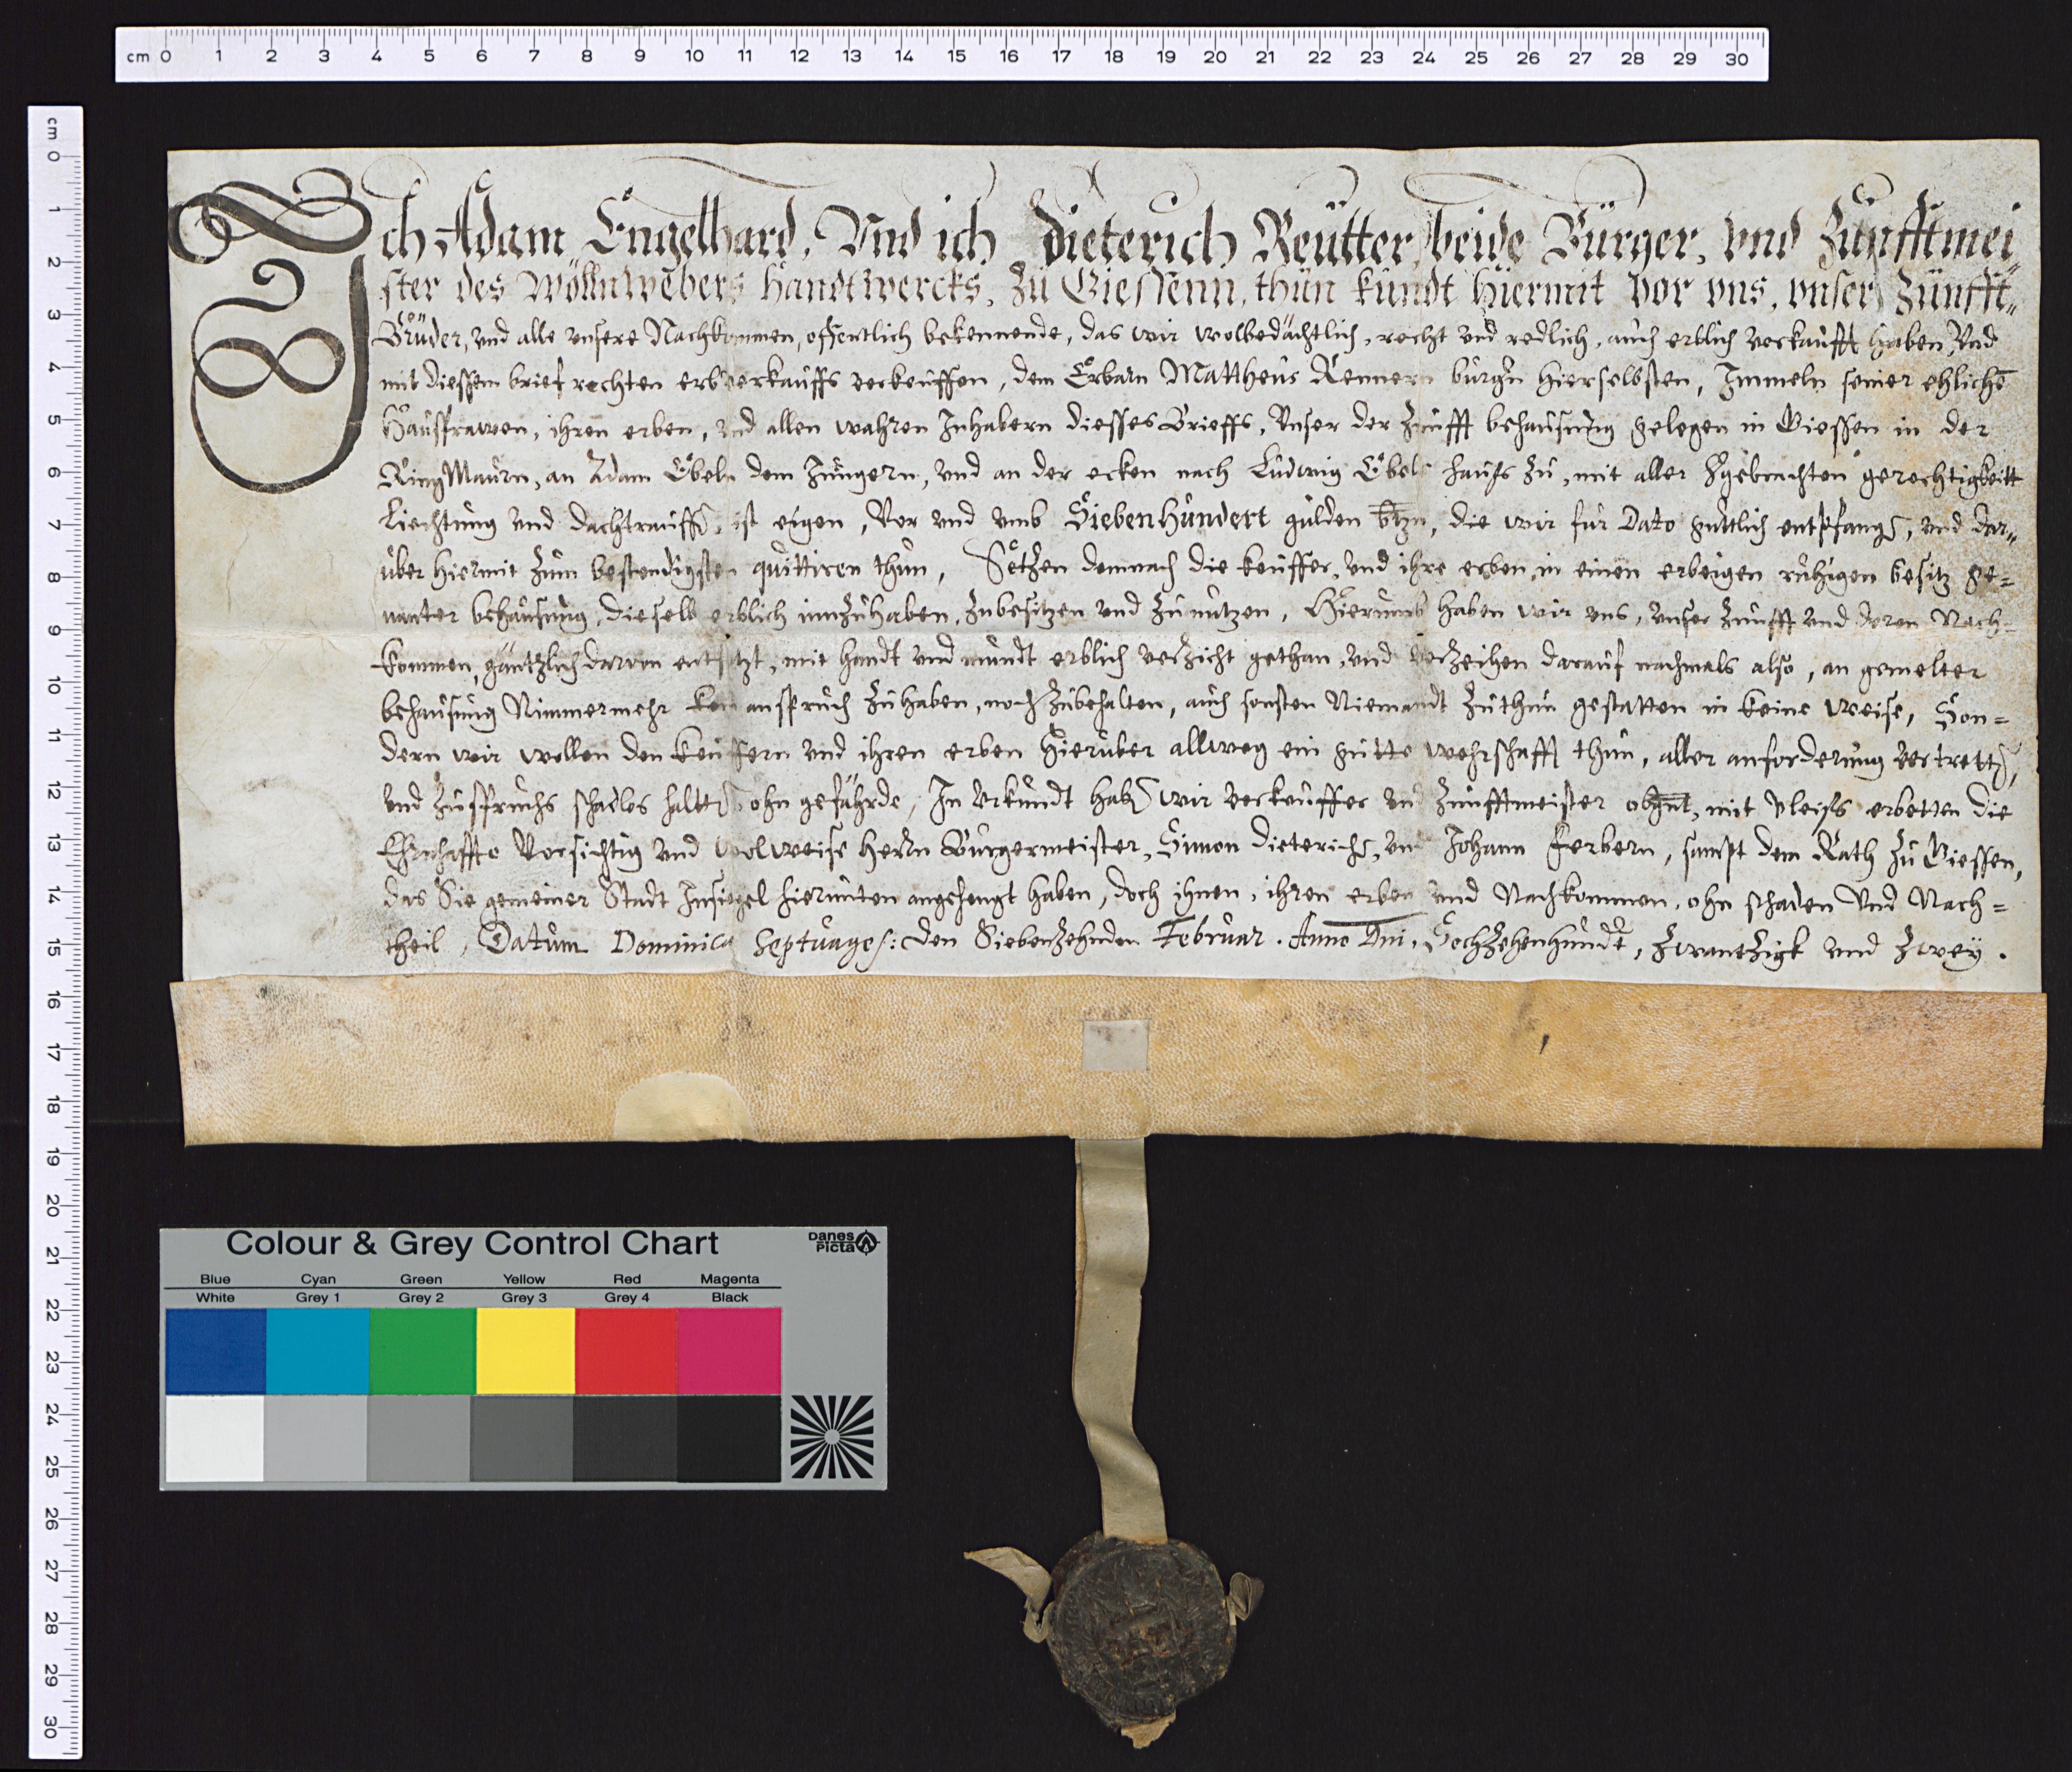 Ich Adam Engelhard, Vnd ich Dieterich Reütter, beide Bürger, vnd Zünfftmei„
ster des Wöllnwebers Handtwercks, Zü Giessenn, thün kündt hiermit vor vns, vnser Zünfft„
Brüder, vnd alle vnsere Nachkommen, offentlich bekennende, das wir wolbedächtlich, recht vnd redlich, auch erblich verkaufft haben, Vnd
mit diessem brief rechten erbverkauffs verkeuffen, dem Erbarn Mattheus Rennern burgern hierselbsten, Immeln seiner ehlichen
Haußfrawen, ihren erben, vnd allen wahren Inhabern diesses Brieffs, Vnser der Zunfft behausung gelegen in Giessen in der
RingMaurn, an Adam Ebeln dem Jüngern, vnd an der ecken nach Ludwig Ebels hauß zu, mit aller gerechtigkeitt
Liechtung vnd dachtrauff, ist eigen, Vor vnd vmb Siebenhundert gulden btzn, die wir für Dato guttlich entpfangen, vnd dar„
über hiermit zum bestendigsten quittiren thun, Setzen demnach die keuffer, vnd ihre erben, in einen erbeigen ruhigen besitz ge=
nanter behausung, dieselb erblich innzuhaben, zubesitzen vnd zunutzen, Hierumb haben wir vns, vnser Zunfft vnd deren Nach=
kommen, gäntzlich darvon entsetzt, mit handt vnd mundt erblich verzicht gethan, vnd verzeihen darauf nachmals also, an gemelter
behausung Nimmermehr kein anspruch zu haben, noch zubehalten, auch sonsten Niemandt zuthun gestatten in keine weise, Son=
dern wir wollen den keuffern vnd ihren erben hierüber allweg ein gutte wehrschafft thun, aller anforderung vertretten,
vnd zuspruchs schadlos haltten ohn gefährde, In Vrkundt haben wir verkeuffer vnd Zunfftmeister obgnt, mit vleiß erbetten die
Ehrnhaffte Vorsichtig vnd wolweise Herrn Bürgermeister, Simon Dieterichen, vnd Johann Ferbern, sampt dem Rath zu Giessen,
das Sie gemeiner Stadt Insiegel hierunten angehengt haben, doch ihnen, ihren erben vnd Nachkommen, ohn schaden Vnd Nach=
theil, Datum Dominica Septuages: den Siebenzehnden Februar. Anno Dni, Sechzehenhundert, Zwantzigk vnd Zwey.
cm 0 1 2 3 4 5 6 7 8 9 10 11 12 13 14 15 16 17 18 19 20 21 22 23 24 25 26 27 28 29 30
cm 0 1 2 3 4 5 6 7 8 9 10 11 12 13 14 15 16 17 18 19 20 21 22 23 24 25 26 27 28 29 30
Colour & Grey Control Chart
Danes
Picta
Blue Cyan Green Yellow Red Magenta
White Grey 1 Grey 2 Grey 3 Grey 4 Black